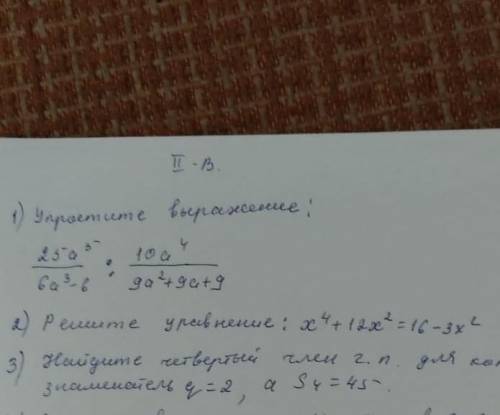 II - В.
1) Упростите выражение:
25a⁵ / 6a³-6 : 10a⁴ / 9a²+9a+9
2) Решите уравнение: x⁴+12x²=16-3x²
3) Найдите четвертый член г.п. для
знаменатель q=2, а S₄=45.